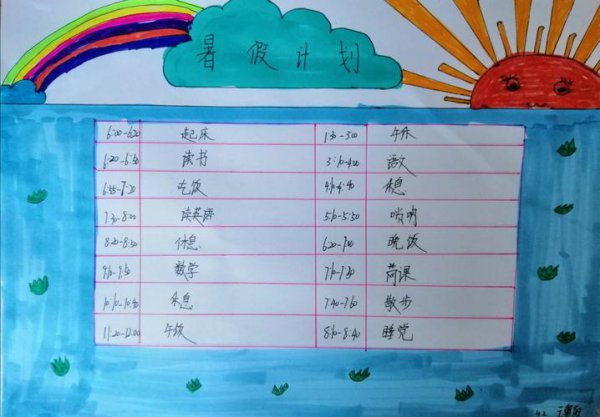 暑假计划
6:00-6:20 起床 1:30-3:00 午休
6:20-6:50 读书 3:10-4:00 语文
吃饭 休息
7:30-8:00 读英语 5:10-5:50 唢呐
8:20-8:50 休息 6:20-7:00 晚饭
9:10-9:50 数学 7:10-7:30
10:10-10:40 休息 7:40-7:60 散步
11:20-12:00 午饭 8:10-8:40 睡觉
4.2